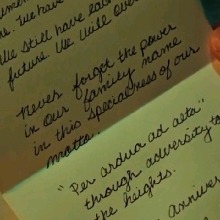 We still have each
future. We wide over
never forget the power
in our family name
in this specialness of our
motto.
"Per ardua ad asta"
through adversity to
the heights.
anniver